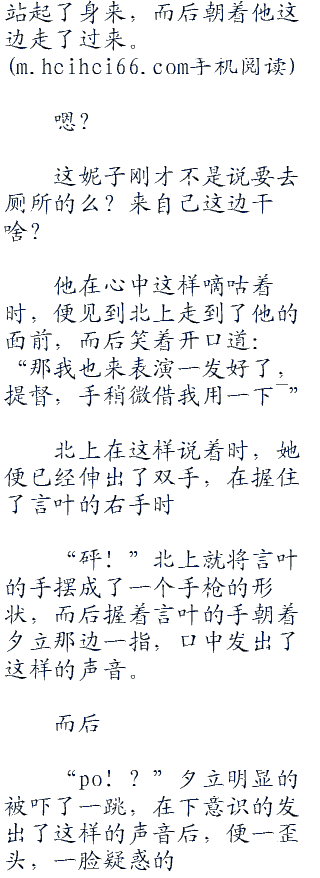 站起了身来，而后朝着他这
边走了过来。
(m.hcihci66.com手机阅读)
嗯？
这妮子刚才不是说要去
厕所的么？来自己这边干
啥？
他在心中这样嘀咕着
时，便见到北上走到了他的
面前，而后笑着开口道：
“那我也来表演一发好了，
提督，手稍微借我用一下¯”
北上在这样说着时，她
便已经伸出了双手，在握住
了言叶的右手时
“砰！”北上就将言叶
的手摆成了一个手枪的形
状，而后握着言叶的手朝着
夕立那边一指，口中发出了
这样的声音。
而后
“po！？”夕立明显的
被吓了一跳，在下意识的发
出了这样的声音后，便一歪
头，一脸疑惑的